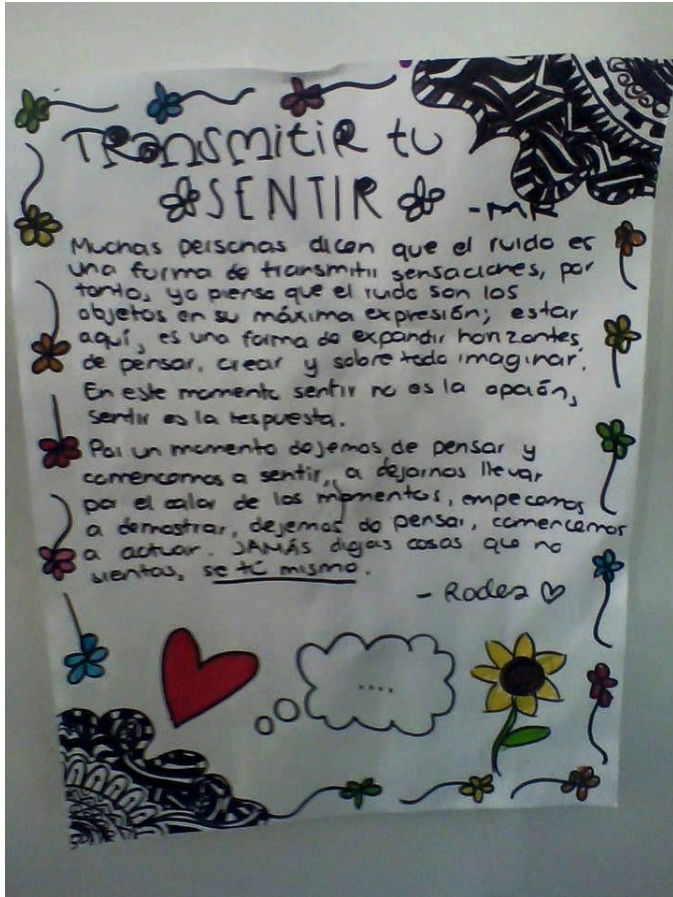 TRansmitir tu
SENTIR
-MR
Muchas personas dicen que el ruido es
una forma de transmitir sensaciones, por
tanto, yo pienso que el ruido son los
objetos en su máxima expresión; estar
aquí, es una forma de expandir horizontes,
de pensar, crear y sobre todo imaginar.
En este momento sentir no es la opción,
sentir es la respuesta.
Por un momento dejemos de pensar y
comencemos a sentir, a dejarnos llevar
por el calor de los momentos, empecemos
a demostrar, dejemos de pensar, comencemos
a actuar. JAMÁS digas cosas que no
sientas, se tú mismo.
- Rodez
....